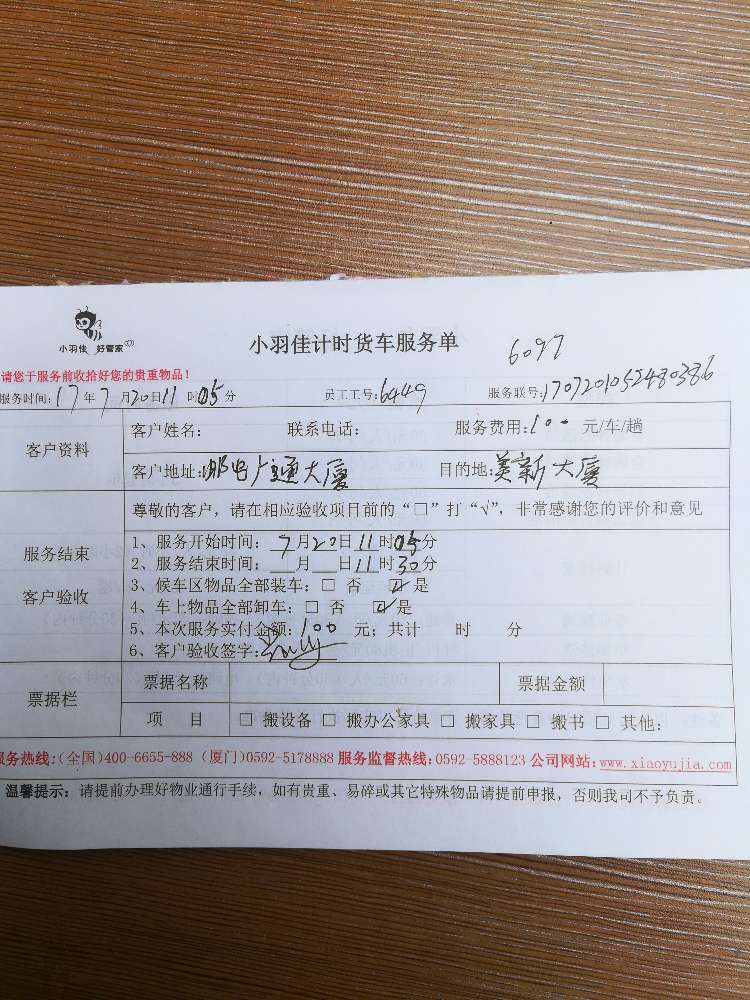 小羽佳 好管家
小羽佳计时货车服务单
6097
请您于服务前收拾好您的贵重物品！
服务时间：17年7月20日11时05分 员工工号：6449 服务联号：1707201052480386
客户资料
客户姓名： 联系电话： 服务费用：100 元/车/趟
客户地址：邮电广通大厦 目的地：美新大厦
服务结束
客户验收
尊敬的客户，请在相应验收项目前的“□”打“√”，非常感谢您的评价和意见
1、服务开始时间：7月20日11时05分
2、服务结束时间： 月 日11时30分
3、候车区物品全部装车：□ 否 ☑是
4、车上物品全部卸车：□ 否 ☑是
5、本次服务实付金额：100 元；共计 时 分
6、客户验收签字：
票据栏
票据名称 票据金额
项 目 □ 搬设备 □ 搬办公家具 □ 搬家具 □ 搬书 □ 其他：
服务热线：(全国)400-6655-888 (厦门)0592-5178888 服务监督热线：0592-5888123 公司网站：www.xiaoyujia.com
温馨提示：请提前办理好物业通行手续，如有贵重、易碎或其它特殊物品请提前申报，否则我司不予负责。